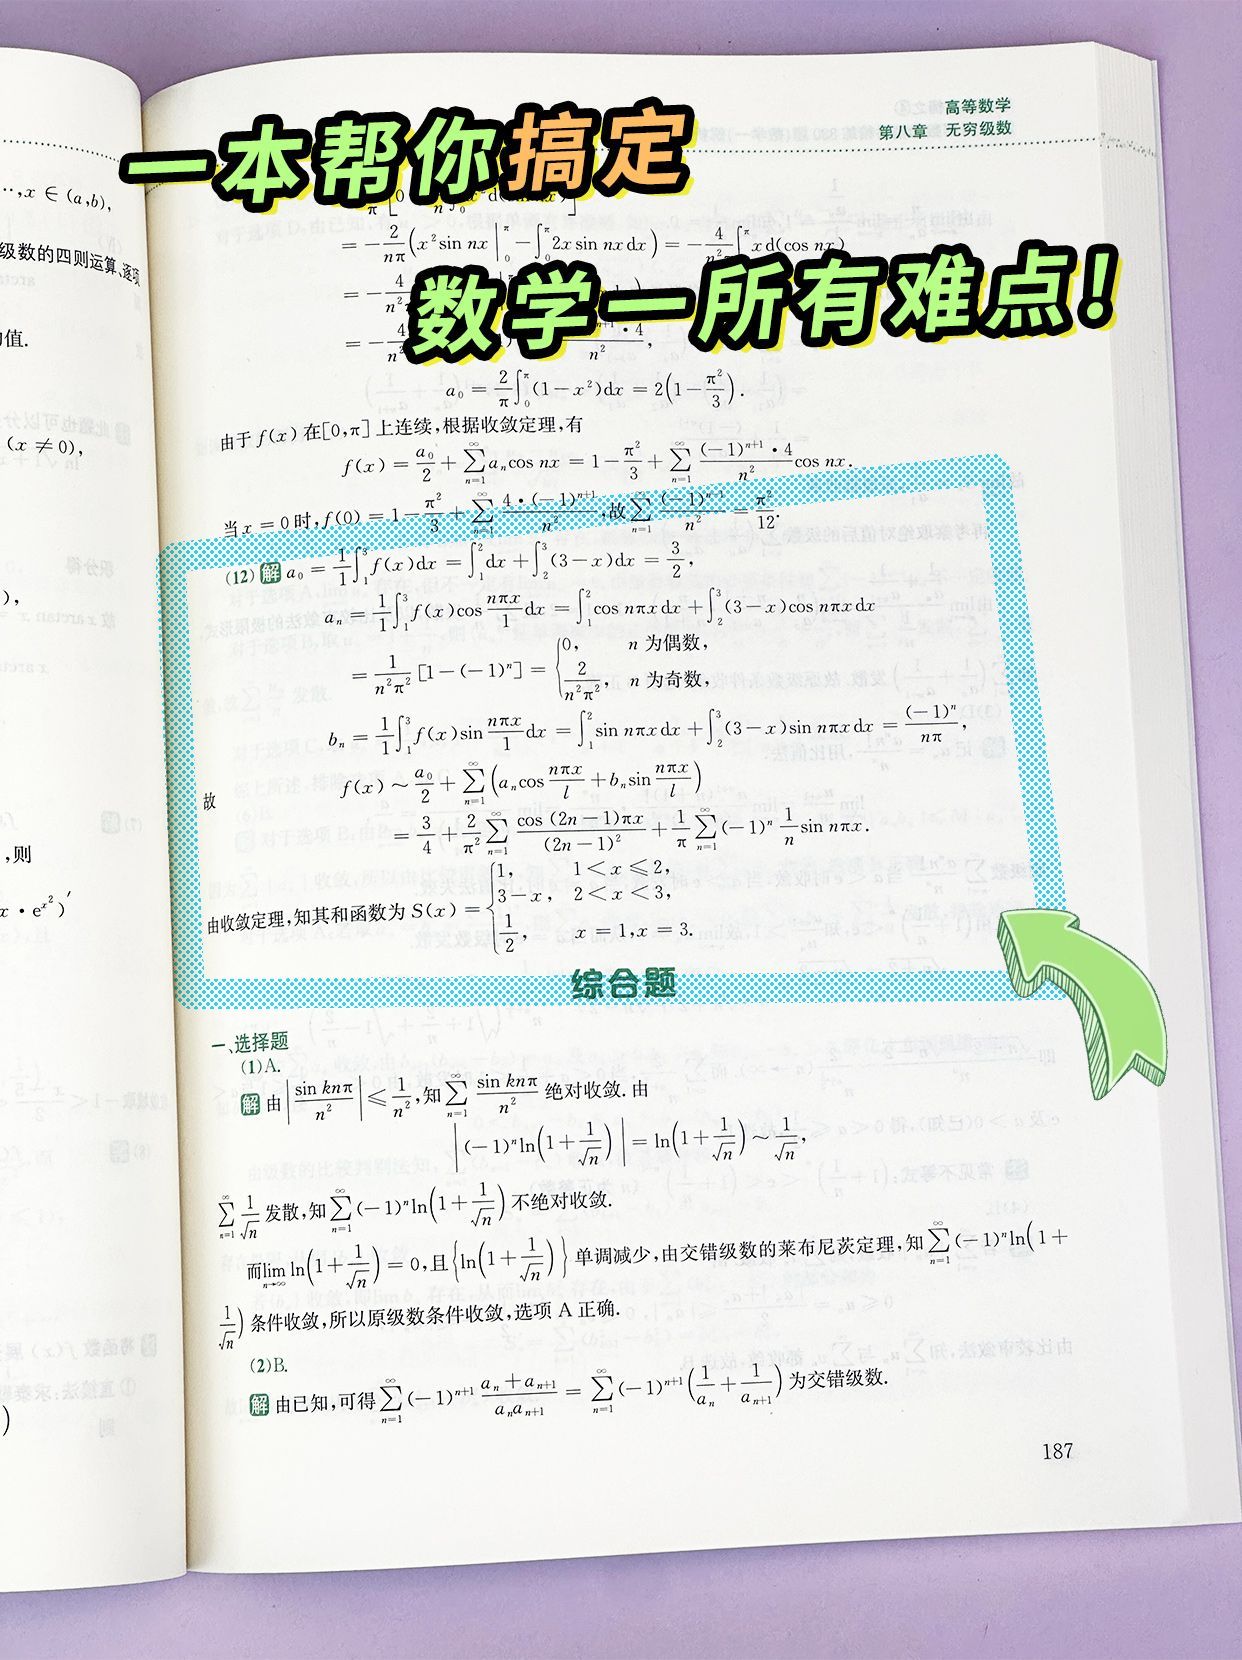 高等数学
第八章 无穷级数
一本帮你搞定
数学一所有难点!
⋯,x ∈ (a,b),
级数的四则运算、逐项
值.
(x ≠ 0),
,则
= -2/(nπ) (x² sin nx |₀^π - ∫₀^π 2x sin nx dx) = -4/(n²π) ∫₀^π x d(cos nx)
a₀ = 2/π ∫₀^π (1-x²)dx = 2(1-π²/3).
由于 f(x) 在[0,π]上连续,根据收敛定理,有
f(x) = a₀/2 + ∑_{n=1}^∞ aₙcos nx = 1 - π²/3 + ∑_{n=1}^∞ (-1)^{n+1}·4/n² cos nx.
当 x = 0 时, f(0) = 1 - π²/3 + ∑_{n=1}^∞ 4·(-1)^{n+1}/n² ,故 ∑_{n=1}^∞ (-1)^{n-1}/n² = π²/12.
(12) 解 a₀ = 1/1 ∫₁³ f(x)dx = ∫₁² dx + ∫₂³ (3-x)dx = 3/2,
aₙ = 1/1 ∫₁³ f(x)cos nπx/1 dx = ∫₁² cos nπx dx + ∫₂³ (3-x)cos nπx dx
= 1/(n²π²) [1-(-1)ⁿ] = { 0, n 为偶数,
2/(n²π²), n 为奇数,
bₙ = 1/1 ∫₁³ f(x)sin nπx/1 dx = ∫₁² sin nπx dx + ∫₂³ (3-x)sin nπx dx = (-1)ⁿ/(nπ),
故 f(x) ~ a₀/2 + ∑_{n=1}^∞ (aₙcos nπx/l + bₙsin nπx/l)
= 3/4 + 2/π² ∑_{n=1}^∞ cos (2n-1)πx/(2n-1)² + 1/π ∑_{n=1}^∞ (-1)ⁿ 1/n sin nπx.
由收敛定理,知其和函数为 S(x) = { 1, 1<x⩽2,
3-x, 2<x<3,
1/2, x = 1,x = 3.
综合题
一、选择题
(1)A.
解 由 |sin knπ/n²| ⩽ 1/n², 知 ∑_{n=1}^∞ sin knπ/n² 绝对收敛. 由
|(-1)ⁿln(1+1/√n)| = ln(1+1/√n) ~ 1/√n,
∑_{n=1}^∞ 1/√n 发散,知 ∑_{n=1}^∞ (-1)ⁿln(1+1/√n) 不绝对收敛.
而 lim_{n→∞} ln(1+1/√n) = 0,且 {ln(1+1/√n)} 单调减少,由交错级数的莱布尼茨定理,知 ∑_{n=1}^∞ (-1)ⁿln(1+
1/√n) 条件收敛,所以原级数条件收敛,选项 A 正确.
(2)B.
解 由已知,可得 ∑_{n=1}^∞ (-1)^{n+1} (aₙ+aₙ₊₁)/(aₙaₙ₊₁) = ∑_{n=1}^∞ (-1)^{n+1} (1/aₙ + 1/aₙ₊₁) 为交错级数.
187